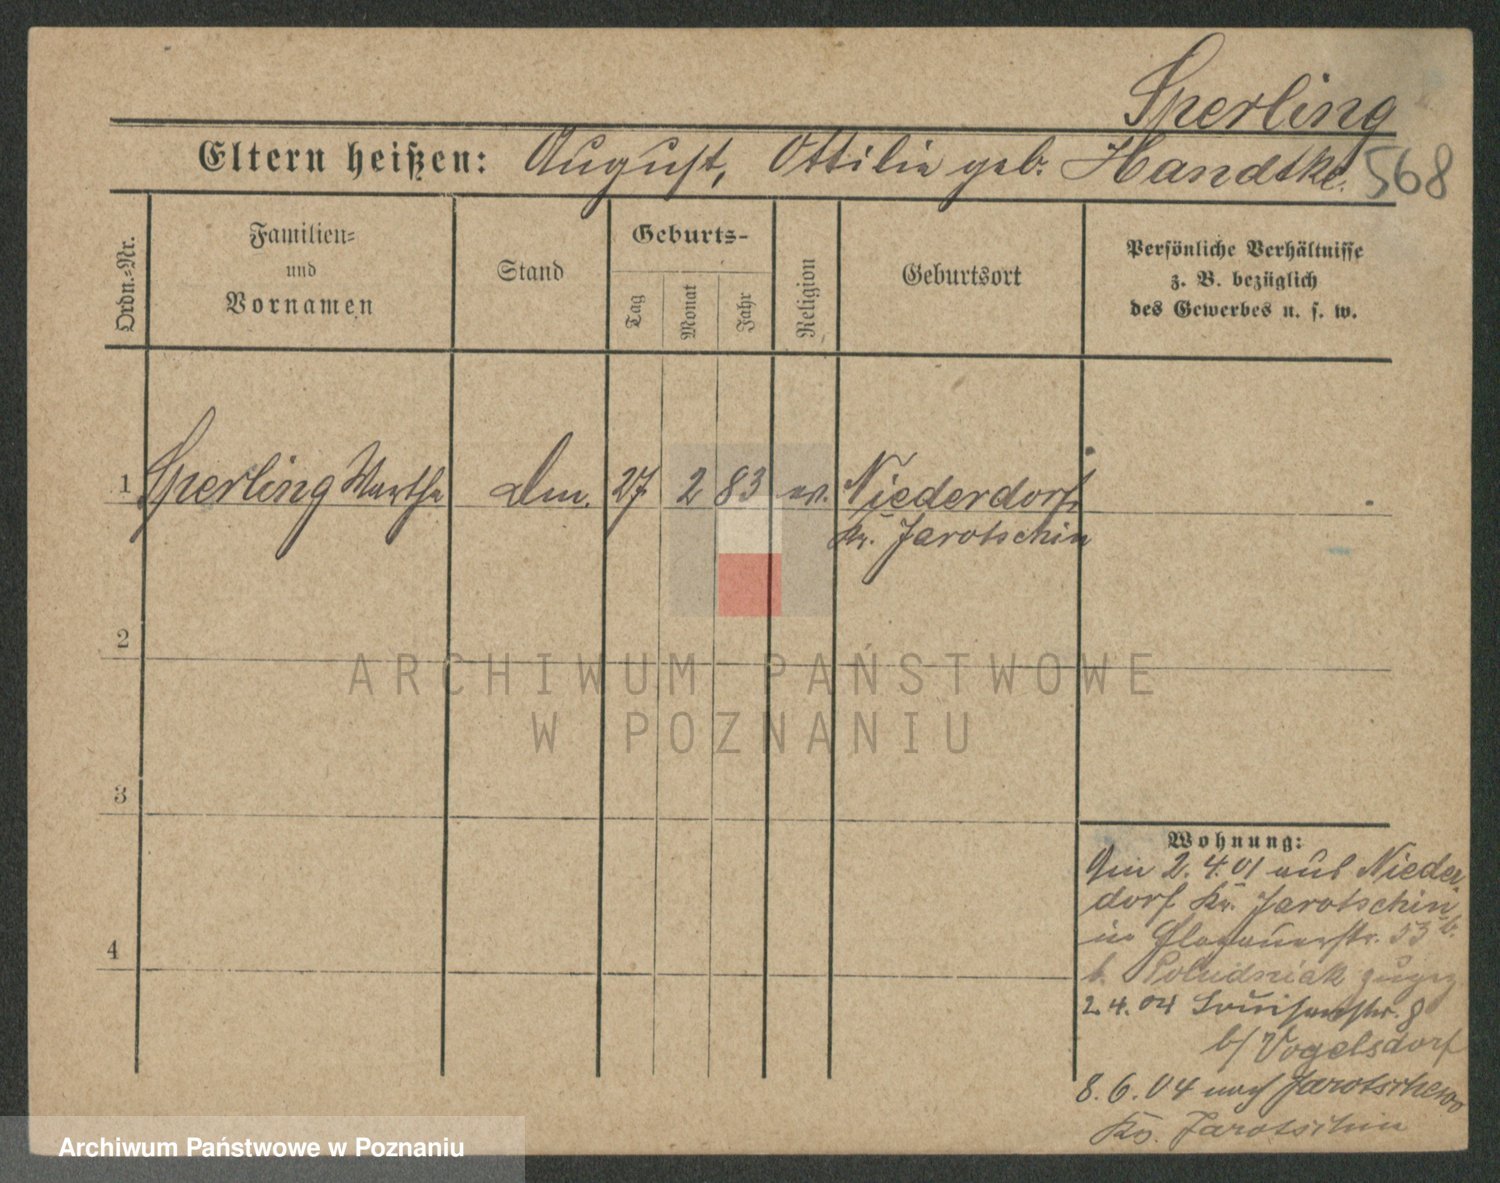 Sperling
Eltern heißen: August, Ottilie geb. Handtke.
568
Ordn.-Nr.
Familien-
und
Vornamen
Stand
Geburts-
Tag
Monat
Jahr
Religion
Geburtsort
Persönliche Verhältnisse
z. B. bezüglich
des Gewerbes u. s. w.
1 Sperling Martha 27 2 83 ev. Niederdorf
Kr. Jarotschin
2
3
4
Wohnung:
Am 2.4.01 aus Nieder
dorf Kr. Jarotschin
in Glogauerstr. 53 b.
b. Poludniak zugez
2.4.04 Louisenstr. 8
b/ Vogelsdorf
8.6.04 nach Jarotschewo
Kr. Jarotschin
ARCHIWUM PAŃSTWOWE
W POZNANIU
Archiwum Państwowe w Poznaniu